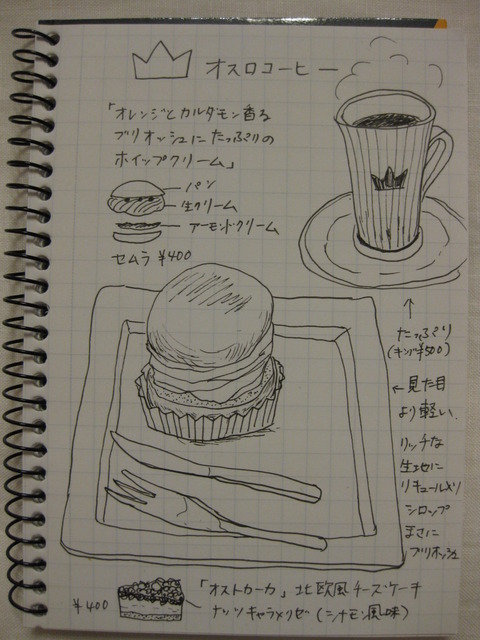 オスロコーヒー
「オレンジとカルダモン香る
ブリオッシュにたっぷりの
ホイップクリーム」
パン
生クリーム
アーモンドクリーム
セムラ ¥400
↑
たっぷり
(キング¥500)
←見た目
より軽い。
リッチな
生地に
リキュール入り
シロップ
まさに
ブリオッシュ
¥400
「オストカーカ」北欧風チーズケーキ
ナッツキャラメリゼ(シナモン風味)